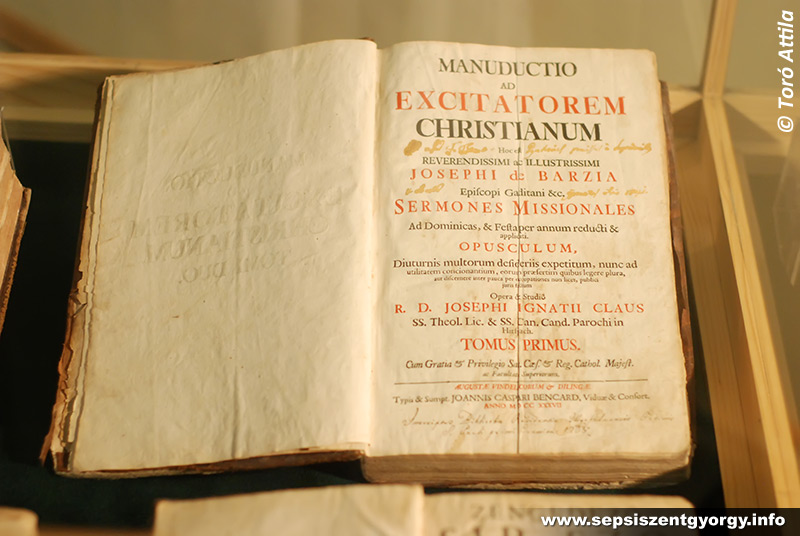 MANUDUCTIO
AD
EXCITATOREM
CHRISTIANUM
Hoc est
REVERENDISSIMI ac ILLUSTRISSIMI
JOSEPHI de BARZIA
Episcopi Gaditani &c.
SERMONES MISSIONALES
Ad Dominicas, & Festa per annum reducti &
applicati.
OPUSCULUM,
Diuturnis multorum desideriis expetitum, nunc ad
utilitatem concionantium, eorum præsertim quibus legere plura,
aut discernere inter pauca per occupationes non licet, publici
juris factum
Opera & Studiô
R. D. JOSEPHI IGNATII CLAUS
SS. Theol. Lic. & SS. Can. Cand. Parochi in
TOMUS PRIMUS.
Cum Gratia & Privilegio Sac. Cæs. & Reg. Cathol. Majest.
ac Facultate Superiorum.
AUGUSTÆ VINDELICORUM & DILINGÆ
Typis & Sumpt. JOANNIS CASPARI BENCARD, Viduæ & Consort.
ANNO M DCC XXXVII
© Toró Attila
www.sepsiszentgyorgy.info